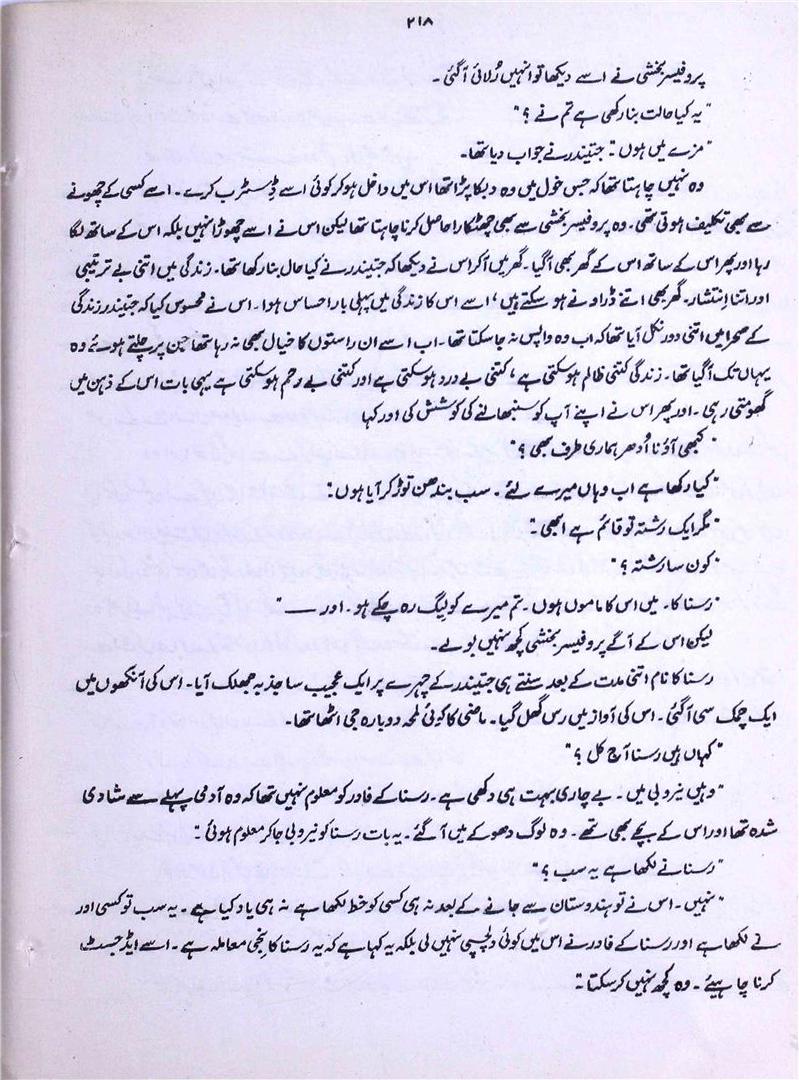 ۲۱۸
پروفیسر بخشی نے اسے دیکھا تو انہیں رُلائی آگئی۔
"یہ کیا حالت بنا رکھی ہے تم نے؟"
"مزے میں ہوں"۔ جتیندر نے جواب دیا تھا۔
وہ نہیں چاہتا تھا کہ جس خول میں وہ دبکا پڑا تھا اس میں داخل ہو کر کوئی اسے ڈِسٹرب کرے۔ اسے کسی کے چھونے
سے بھی تکلیف ہوتی تھی۔ وہ پروفیسر بخشی سے بھی چھٹکارا حاصل کرنا چاہتا تھا لیکن اس نے اسے چھوڑا نہیں بلکہ اس کے ساتھ لگا
رہا اور پھر اس کے ساتھ اس کے گھر بھی آگیا۔ گھر میں آکر اس نے دیکھا کہ جتیندر نے کیا حال بنا رکھا تھا۔ زندگی میں اتنی بے ترتیبی
اور اتنا انتشار۔ گھر بھی اتنے ڈراونے ہو سکتے ہیں، اسے اس کا زندگی میں پہلی بار احساس ہوا۔ اس نے محسوس کیا کہ جتیندر زندگی
کے صحرا میں اتنی دور نکل آیا تھا کہ اب وہ واپس نہ جا سکتا تھا۔ اب اسے ان راستوں کا خیال بھی نہ رہا تھا جن پر چلتے ہوئے وہ
یہاں تک آگیا تھا۔ زندگی کتنی ظالم ہو سکتی ہے، کتنی بے درد ہو سکتی ہے اور کتنی بے رحم ہو سکتی ہے یہی بات اس کے ذہن میں
گھومتی رہی۔ اور پھر اس نے اپنے آپ کو سنبھالنے کی کوشش کی اور کہا
"کبھی آؤ نا اُدھر ہماری طرف بھی؟"
"کیا رکھا ہے اب وہاں میرے لئے۔ سب بندھن توڑ کر آیا ہوں"۔
"مگر ایک رشتہ تو قائم ہے ابھی"۔
"کون سا رشتہ؟"
"رسنا کا۔ میں اس کا ماموں ہوں۔ تم میرے کولیگ رہ چکے ہو۔ اور ــــ"
لیکن اس کے آگے پروفیسر بخشی کچھ نہیں بولے۔
رسنا کا نام اتنی مدت کے بعد سنتے ہی جتیندر کے چہرے پر ایک عجیب سا جذبہ جھلک آیا۔ اس کی آنکھوں میں
ایک چمک سی آگئی۔ اس کی آواز میں رس گھل گیا۔ ماضی کا کوئی لمحہ دوبارہ جی اٹھا تھا۔
"کہاں ہیں رسنا آج کل؟"
"وہیں نیروبی میں۔ بے چاری بہت ہی دکھی ہے۔ رسنا کے فادر کو معلوم نہیں تھا کہ وہ آدمی پہلے سے شادی
شدہ تھا اور اس کے بچے بھی تھے۔ وہ لوگ دھوکے میں آگئے۔ یہ بات رسنا کو نیروبی جا کر معلوم ہوئی"۔
"رسنا نے لکھا ہے یہ سب؟"
"نہیں۔ اس نے تو ہندوستان سے جانے کے بعد نہ ہی کسی کو خط لکھا ہے نہ ہی یاد کیا ہے۔ یہ سب تو کسی اور
نے لکھا ہے اور رسنا کے فادر نے اس میں کوئی دلچسپی نہیں لی بلکہ یہ کہا ہے کہ یہ رسنا کا نِجی معاملہ ہے۔ اسے ایڈجسٹ
کرنا چاہیئے۔ وہ کچھ نہیں کر سکتا"۔